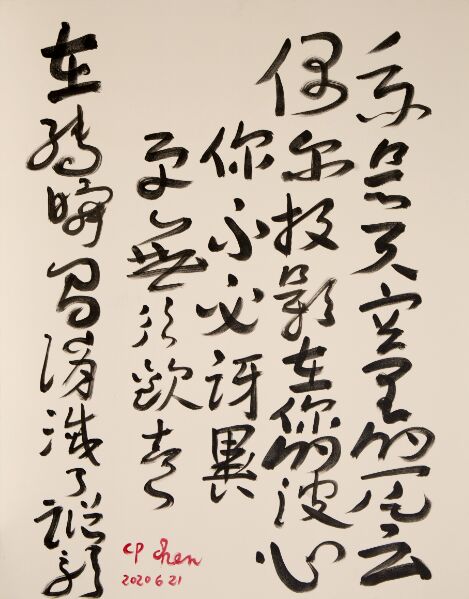 我是天空里的一片云
偶尔投影在你的波心
你不必訝異
更無須歡喜
在轉瞬間消滅了蹤影
CP Chen
2020 6 21